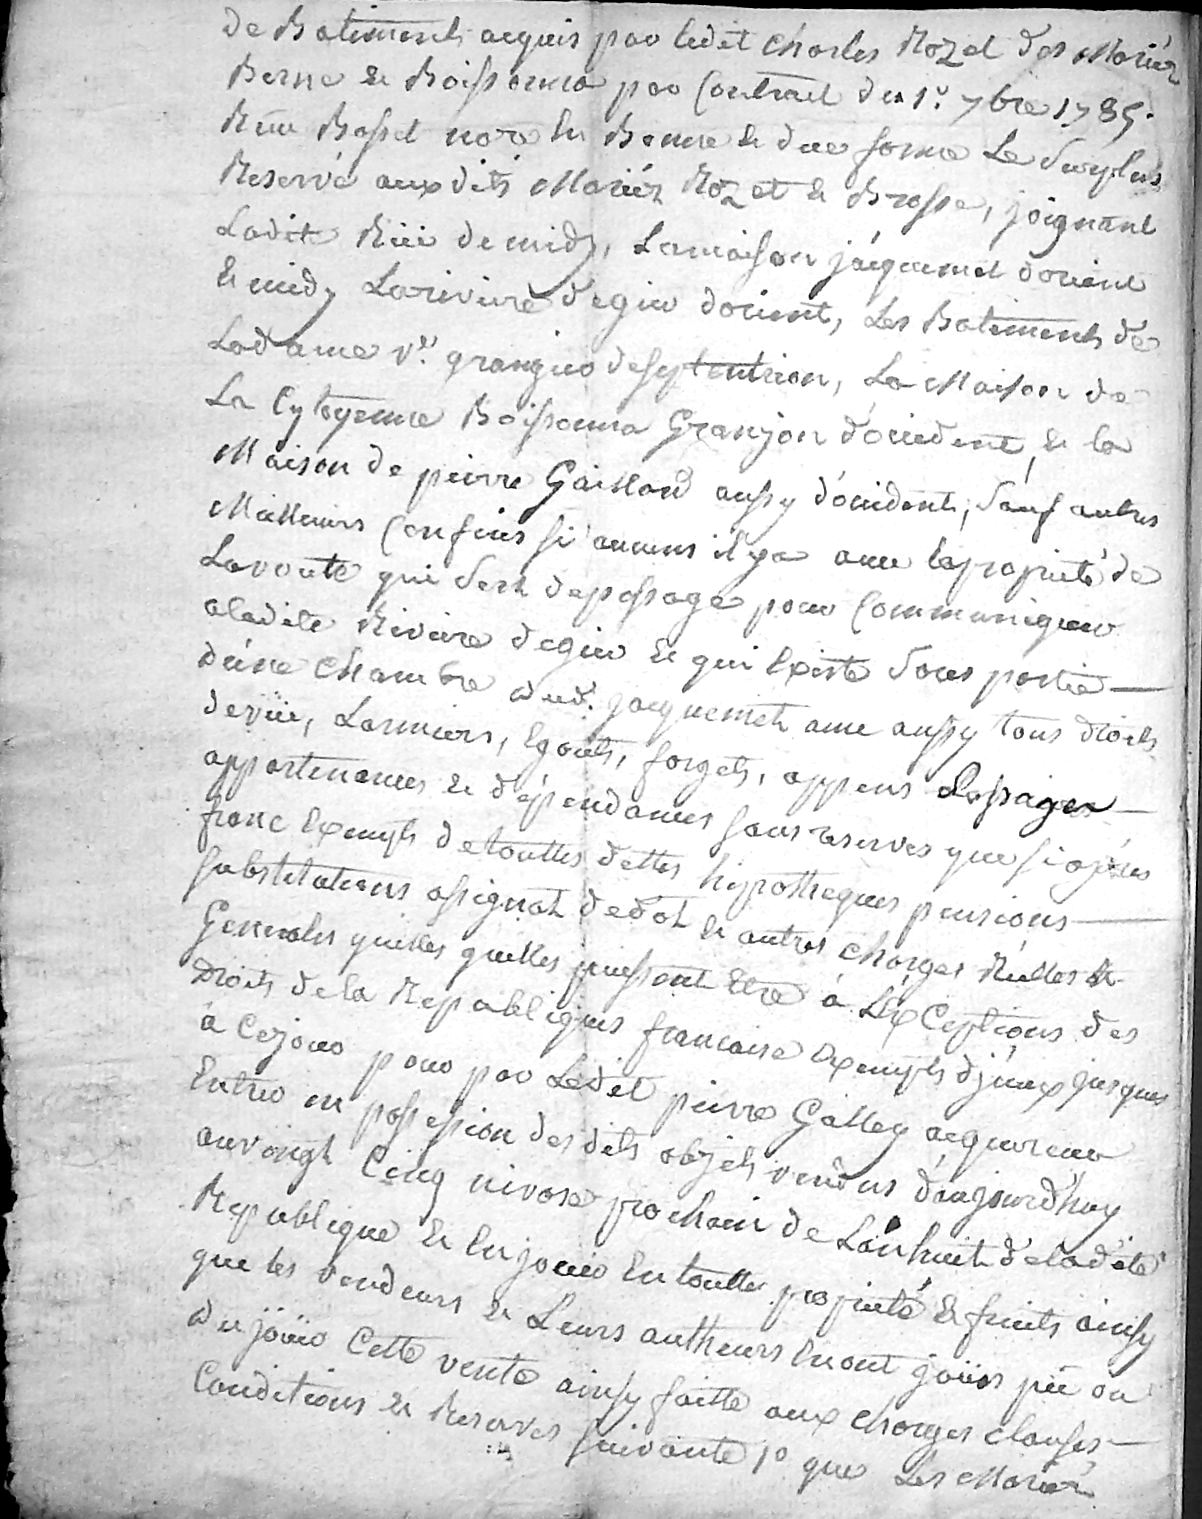 de Batiments acquis par ledit Charles Rozet des Mariéz
Berne & Boissonna par Contrat du 1.er 7bre 1785.
Reçu Basset nore En Bonne & due forme Le Surplus
Reservé aux dits Mariéz Rozet & Brosse, joignant
Ladite Rüe de midy, Lamaison jacquemet dorient
& midy Lariviere degier dorient, Les Batiments de
Ladame v.e grangier deseptentrion, La Maison de
La Cytoyenne Boissonna Granjon d'occident, & la
Maison de pierre Gaillard aussy d'occident, Sauf autres
Meilleurs Confins si aucuns il y a avec la propriété de
Lavoute qui Sert depassage pour Communiquer
aladite Riviere degier & qui Existe Sous partie
d'une Chambre aud. jacquemet avec aussy tous droits
devüe, Larmiers, Egouts, forgets, appens Passages
appartenances & dépendances sans reserves que si après
franc Exempts detouttes dettes hypotheques pensions
substitutions assignat dedot & autres charges Réelles &
Generales quelles quelles puissent Etre à L'Exceptions des
Droits de la Republiques francaise Exempts d'jceux jusques
à Cejour pour par Ledit pierre Galley acquereur
Entrer en possession des dits objets vendus d'aujourd'huy
auvingt Cinq nivose prochain de L'an huit deladite
Republique & En jouir En toutte propriété & fruits ainsy
que les vendeurs & Leurs autheurs En ont joüis pû ou
du joüir Cette vente ainsy faitte aux charges clauses
Conditions & Reserves suivante 1° que Les Mariéz